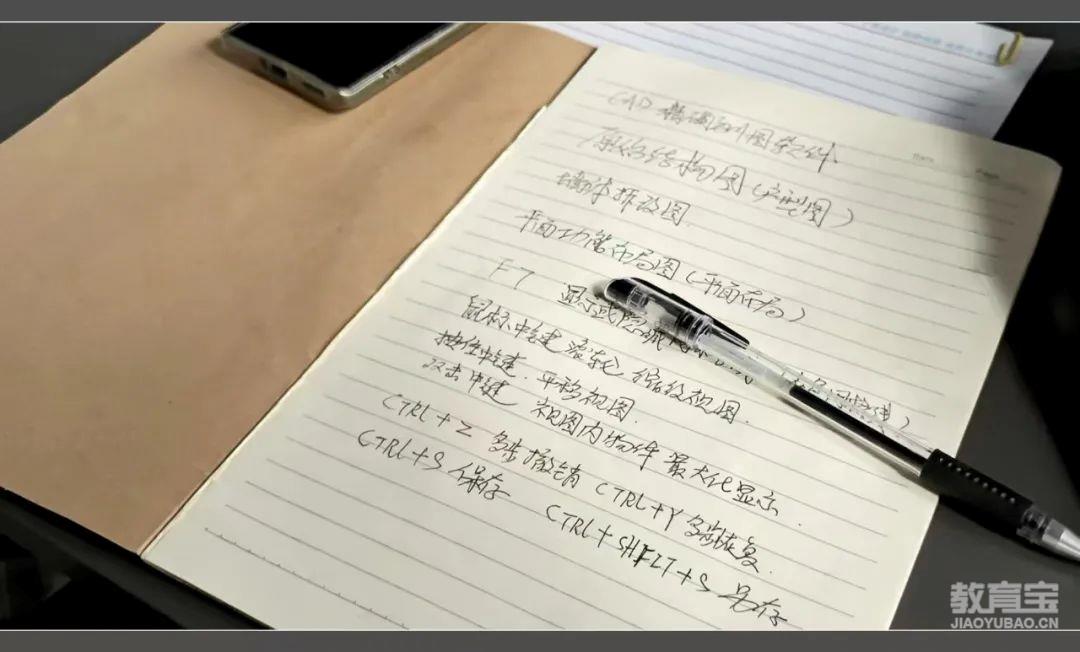 CAD 精确制图软件
原始结构图(户型图)
墙体拆改图
平面功能布局图(平面布局)
F7 显示或隐藏
鼠标中键滚轮 缩放视图.
按住中键.平移视图.
双击中键 视图内物件最大化显示.
CTRL+Z 多步撤销 CTRL+Y多步恢复.
CTRL+S 保存
CTRL+SHIFT+S 另存
教育宝
JIAOYUBAO.CN